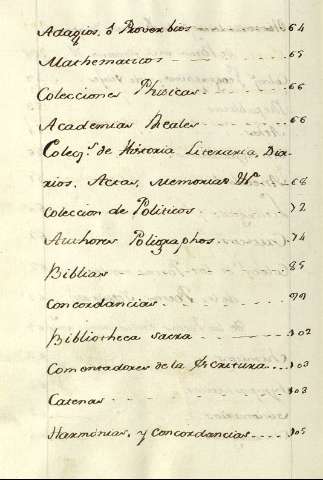 Adagios, ó Proverbios 64
Mathematicos 65
Colecciones Phisicas 66
Academias Reales 66
Colecs. de Historia Literaria, Dia-
rios, Actas, Memorias 68
Coleccion de Politicos 72
Authores Poligraphos 74
Biblias 85
Concordancias 99
Bibliotheca sacra 102
Comentadores de la Escritura 103
Catenas 103
Harmonias, y Concordancias 105